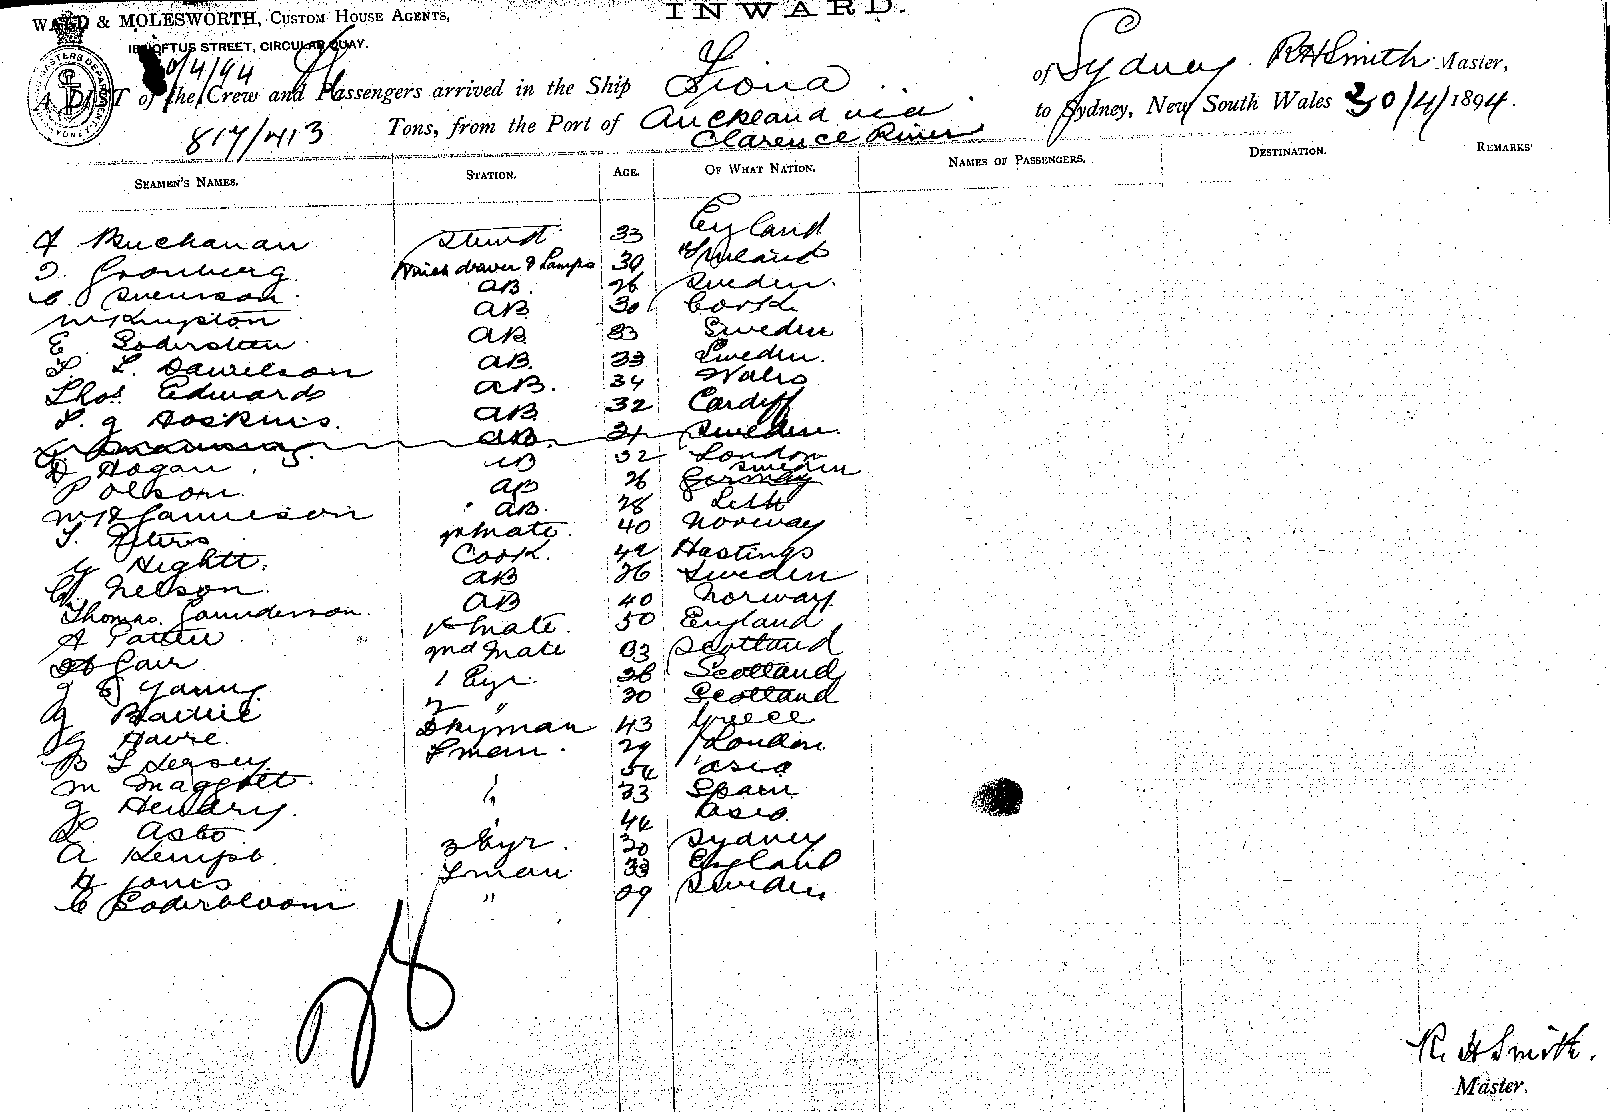 INWARD.
WARD & MOLESWORTH, CUSTOM HOUSE AGENTS,
LOFTUS STREET, CIRCULAR QUAY.
/4/94
A LIST of the Crew and Passengers arrived in the Ship Fiona of Sydney. R H Smith Master,
817/413 Tons, from the Port of Auckland via Clarence River to Sydney, New South Wales 30/4/1894.
SEAMEN'S NAMES. STATION. AGE. OF WHAT NATION. NAMES OF PASSENGERS. DESTINATION. REMARKS
Buchanan Stewd. 33 England
Gronberg drawer & Lamps 30
Svenson. AB. 26 Sweden.
AB 30 Cork
E AB 33 Sweden
L. AB. 33 Sweden.
Thos. Edwards AB. 34 Wales
Hoskins. AB 32 Cardiff
AB. Sweden.
D Hogan AB 32 London
P Olsson. AB 26 Germany Sweden
Jamieson AB. 28 Leith
Peters Mate. 40 Norway
Hightt. Cook. 42 Hastings
Nelson. AB 26 Sweden
Thomas Gaunderson. AB 40 Norway.
A Pattie 1st Mate. 50 England
Gair 2nd Mate 33 Scotland
Young. 1 Egr. 36 Scotland
Baillie 2 " 30 Scotland
G Havre. Dkyman 43 Greece
B L Jersey Fman. 29 London
M Maggott 54 Asia
G Hendry. 33 Spain
Asto Asia.
A Kempt. 3 Egr. 30 Sydney
H Jones Fman. 33 England
C Soderbloom " 29 Sweden
28
R. H Smith.
Master.